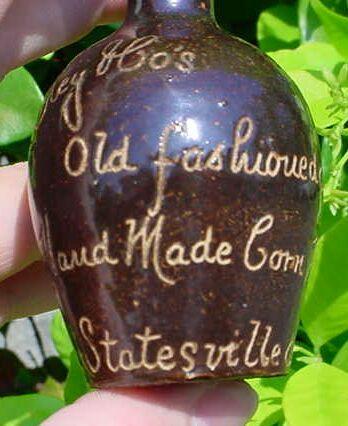 ey & Co's
Old fashioned
Hand Made Corn
Statesville